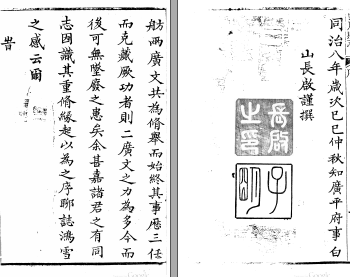 舫兩廣文共為脩舉而始終其事歷三任
而克蕆厥功者則二廣文之力為多今而
後可無墜廢之患矣余甚嘉諸君之有同
志因識其重脩緣起以為之序聊誌鴻雪
之感云爾
旹
同治八年歲次己巳仲秋知廣平府事白
山長啟謹撰
長啟之印
子明